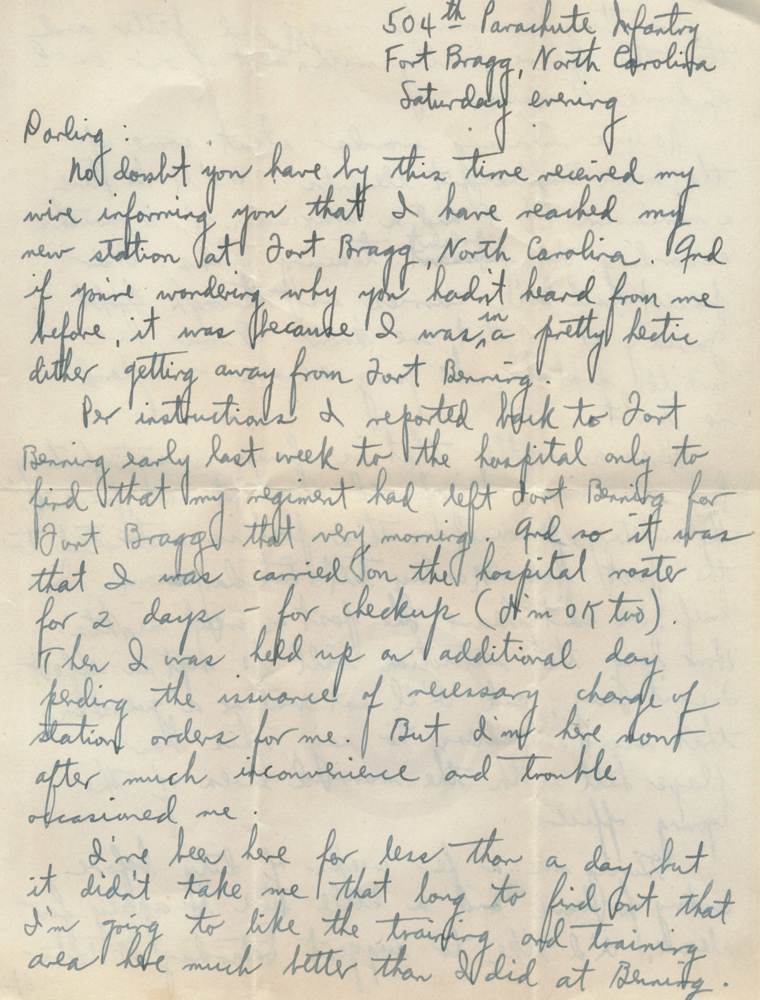 504th Parachute Infantry
Fort Bragg, North Carolina
Saturday evening
Darling:
No doubt you have by this time received my
wire informing you that I have reached my
new station at Fort Bragg, North Carolina. And
if you're wondering why you hadn't heard from me
before, it was because I was in a pretty hectic
dither getting away from Fort Benning.
Per instructions I reported back to Fort
Benning early last week to the hospital only to
find that my regiment had left Fort Benning for
Fort Bragg that very morning. And so it was
that I was carried on the hospital roster
for 2 days - for checkup (I'm OK too).
Then I was held up an additional day
pending the issuance of necessary change of
station orders for me. But I'm here now
after much inconvenience and trouble
occasioned me.
I've been here for less than a day but
it didn't take me that long to find out that
I'm going to like the training and training
area here much better than I did at Benning.